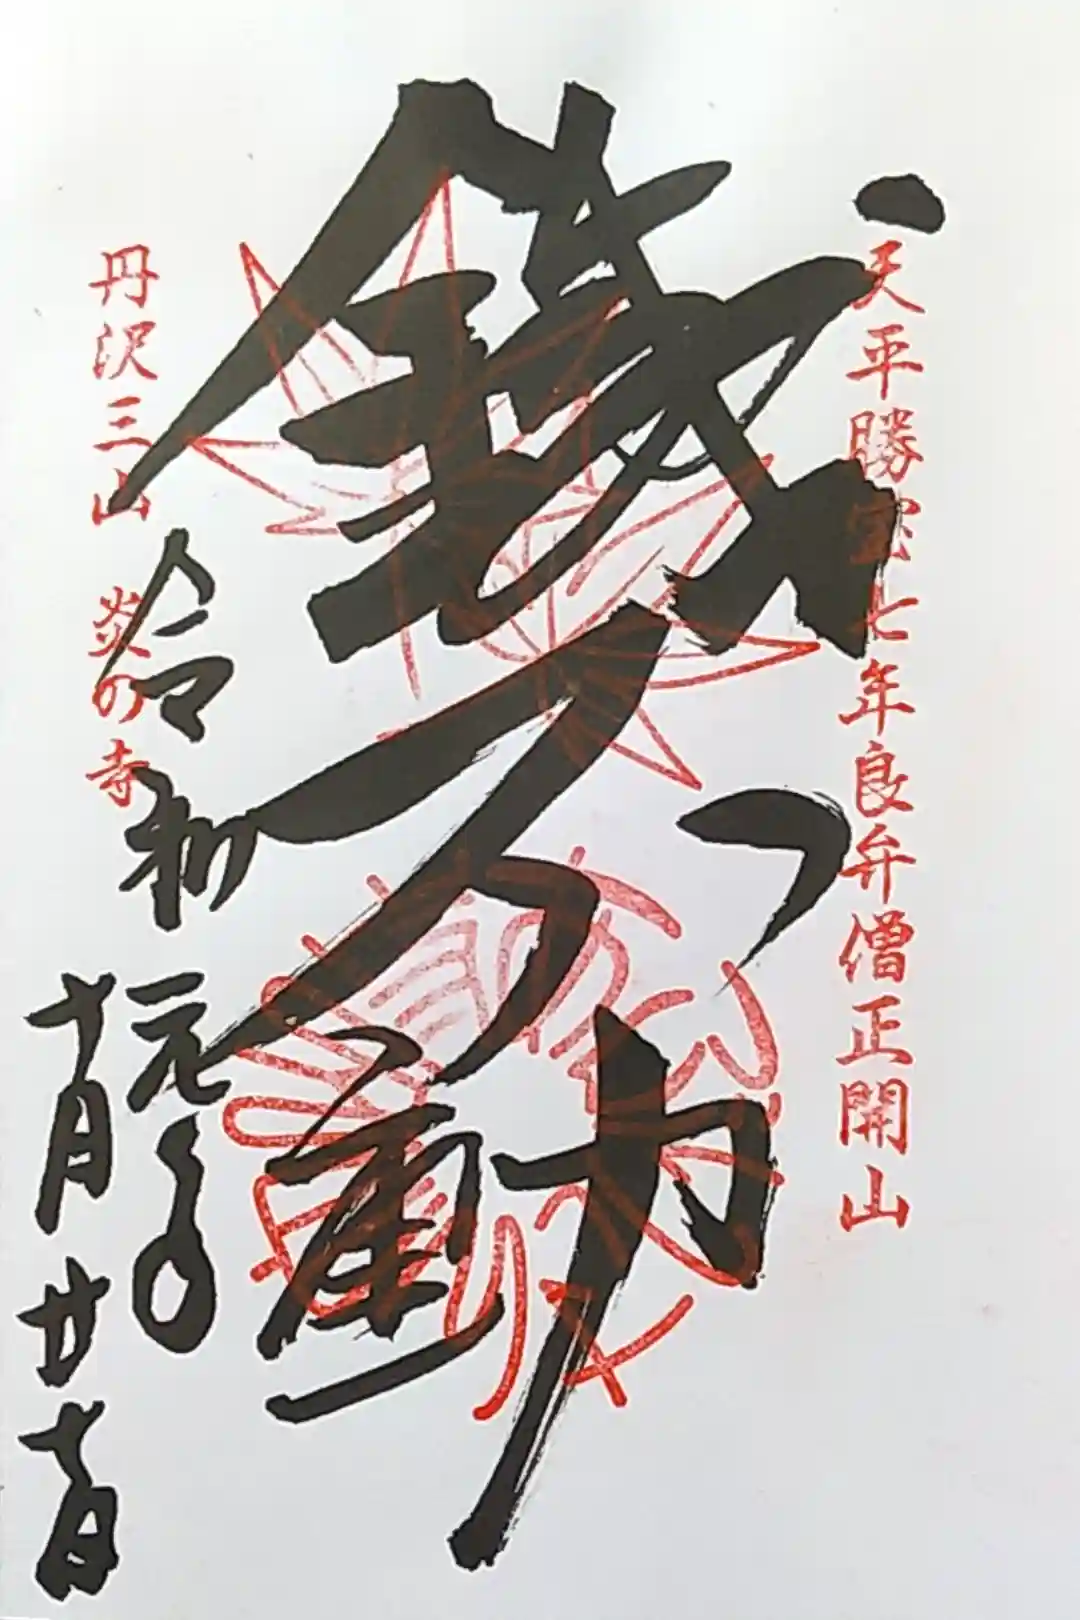 天平勝宝七年良弁僧正開山
鉄不動
令和元年
十月廿七日
丹沢三山 炎の寺